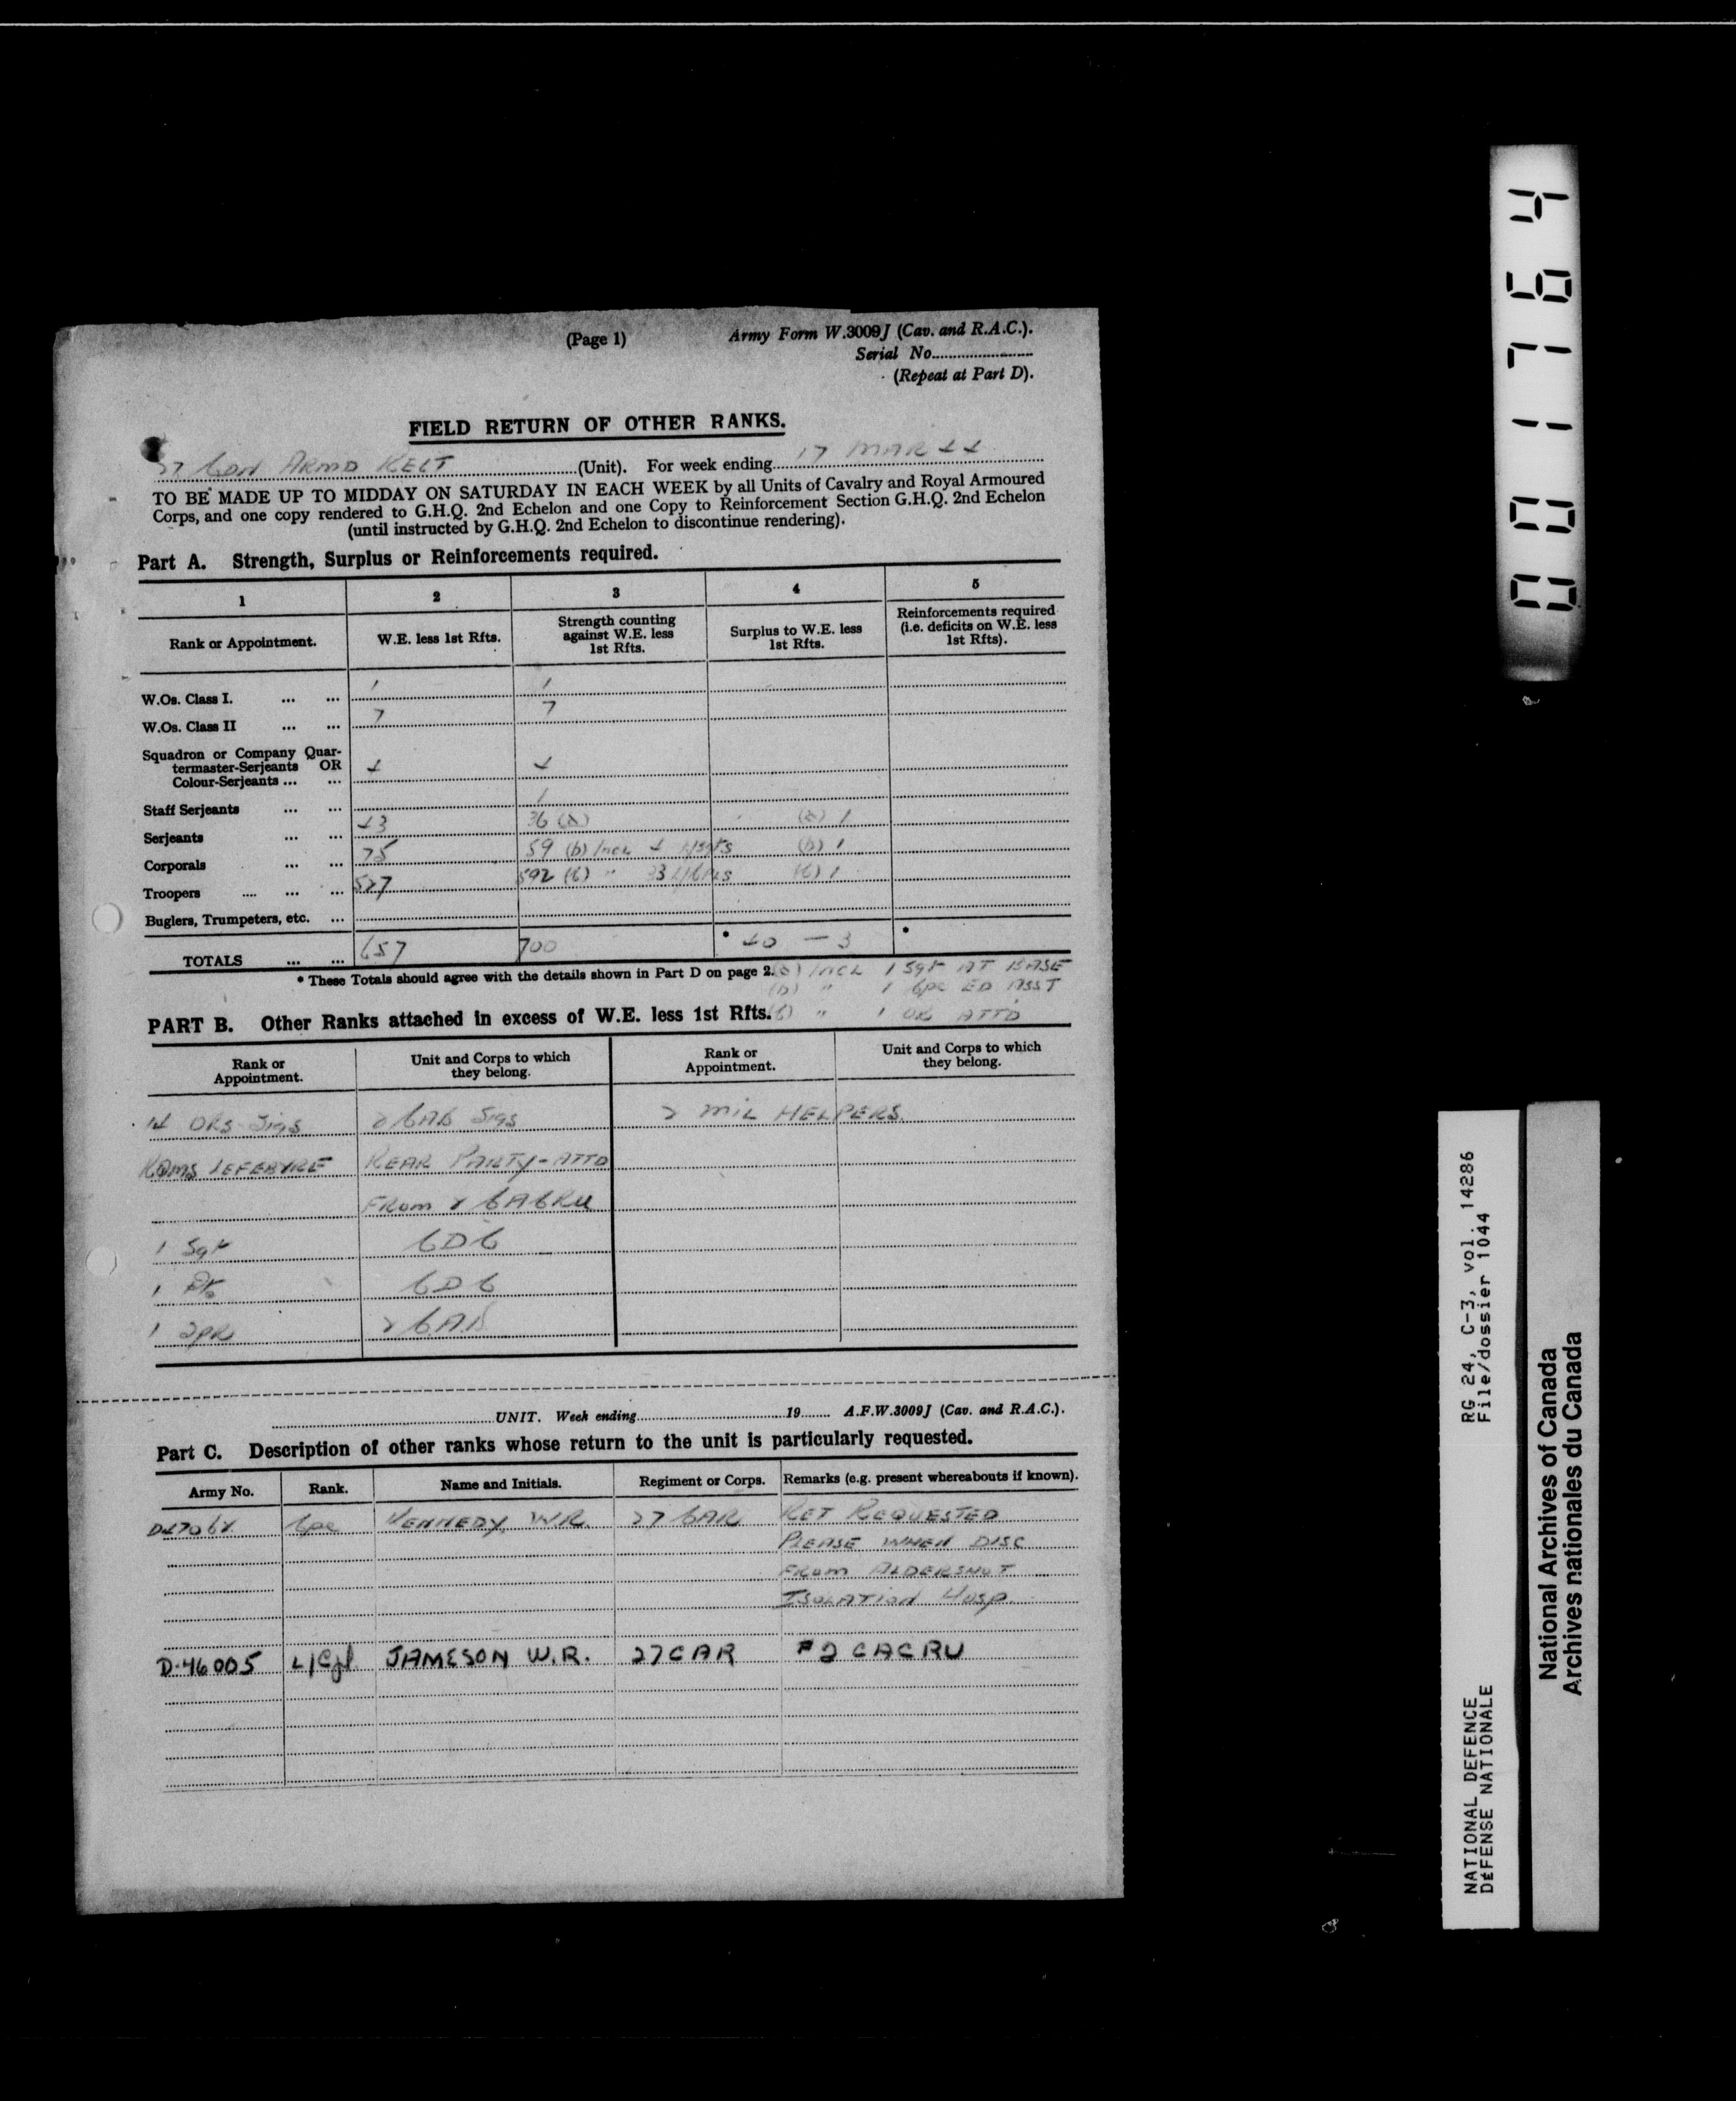 (Page 1)
Army Form W.3009J (Cav. and R.A.C.).
Serial No.....................
(Repeat at Part D).
FIELD RETURN OF OTHER RANKS.
27 Cdn Armd Regt (Unit). For week ending 17 MAR 44
TO BE MADE UP TO MIDDAY ON SATURDAY IN EACH WEEK by all Units of Cavalry and Royal Armoured
Corps, and one copy rendered to G.H.Q. 2nd Echelon and one Copy to Reinforcement Section G.H.Q. 2nd Echelon
(until instructed by G.H.Q. 2nd Echelon to discontinue rendering).
Part A. Strength, Surplus or Reinforcements required.
1 2 3 4 5
Rank or Appointment. W.E. less 1st Rfts. Strength counting against W.E. less 1st Rfts. Surplus to W.E. less 1st Rfts. Reinforcements required (i.e. deficits on W.E. less 1st Rfts).
W.Os. Class I. ... ... 1 1
W.Os. Class II ... ... 7 7
Squadron or Company Quar-
termaster-Serjeants OR 4 4
Colour-Serjeants ... ...
Staff Serjeants ... ... 1
Serjeants ... ... 43 36 (a) (a) 1
Corporals ... ... 75 59 (b) Incl 4 L/Sgts (b) 1
Troopers .... ... ... 527 592 (c) " 33 L/Cpls (c) 1
Buglers, Trumpeters, etc. ...
TOTALS ... ... 657 700 * 40 - 3 *
* These Totals should agree with the details shown in Part D on page 2.
(a) INCL 1 Sgt AT BASE
(b) " 1 Cpl ED ASST
(c) " 1 OR ATTD
PART B. Other Ranks attached in excess of W.E. less 1st Rfts.
Rank or Appointment. Unit and Corps to which they belong. Rank or Appointment. Unit and Corps to which they belong.
14 ORs Sigs 2 CAB Sigs 2 MIL HELPERS
RQMS LEFEBVRE REAR PARTY - ATTD
FROM 2 CACRU
1 Sgt CDC
1 Pte CDC
1 SPR 2 CAB
UNIT. Week ending 19 A.F.W.3009J (Cav. and R.A.C.).
Part C. Description of other ranks whose return to the unit is particularly requested.
Army No. Rank. Name and Initials. Regiment or Corps. Remarks (e.g. present whereabouts if known).
Cpl KENNEDY W.R. 27 CAR RET REQUESTED
PLEASE WHEN DISC
FROM ALDERSHOT
ISOLATION HOSP.
D.46005 L/Cpl JAMESON W.R. 27 CAR #2 CACRU
001764
RG 24, C-3, vol. 14286
File/dossier 1044
NATIONAL DEFENCE
DÉFENSE NATIONALE
National Archives of Canada
Archives nationales du Canada